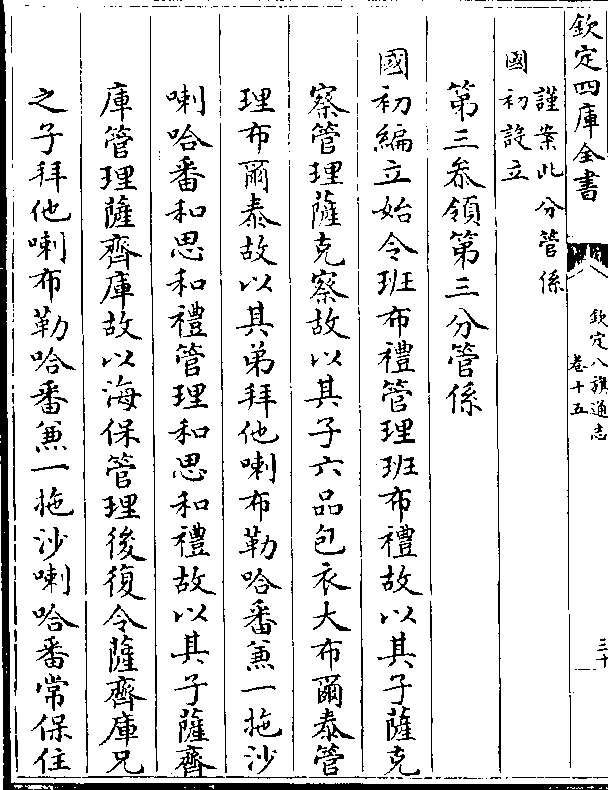 欽定四庫全書
欽定八旗通志
卷十五
三十
謹案此分管係
國初設立
第三叅領第三分管係
國初編立始令班布禮管理班布禮故以其子薩克
察管理薩克察故以其子六品包衣大布爾泰管
理布爾泰故以其弟拜他喇布勒哈番兼一拖沙
喇哈番和思和禮管理和思和禮故以其子薩齊
庫管理薩齊庫故以海保管理後復令薩齊庫兄
之子拜他喇布勒哈番兼一拖沙喇哈番常保住